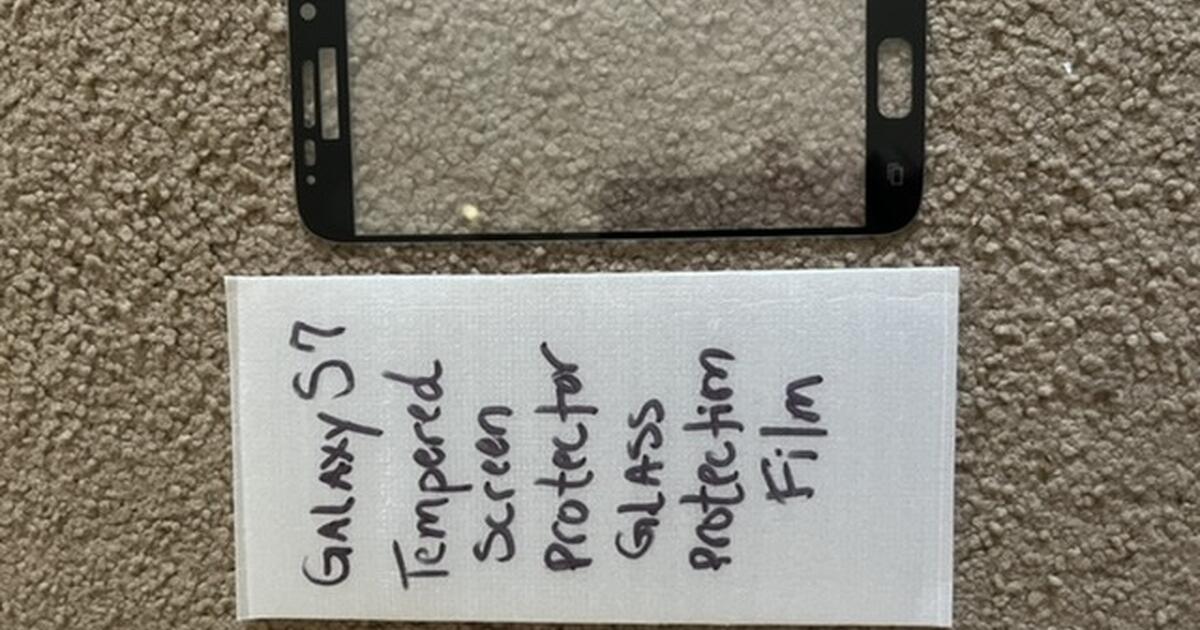 GALAXY S7
Tempered
Screen
protector
GLASS
protection
Film